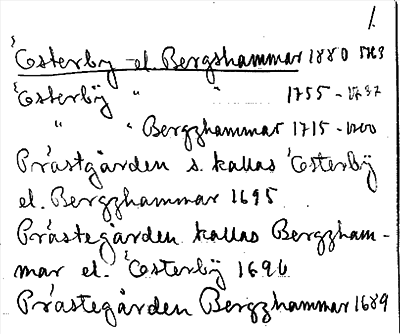 1.
Österby el. Bergshammar 1880
Österbÿ " " 1755 - 1737
" " Bergzhammar 1715 - 1700
Prästgården s. kallas Österbÿ
el. Bergzhammar 1695
Prästegården kallas Bergzham-
mar el. Österbÿ 1696
Prästegården Bergzhammar 1689